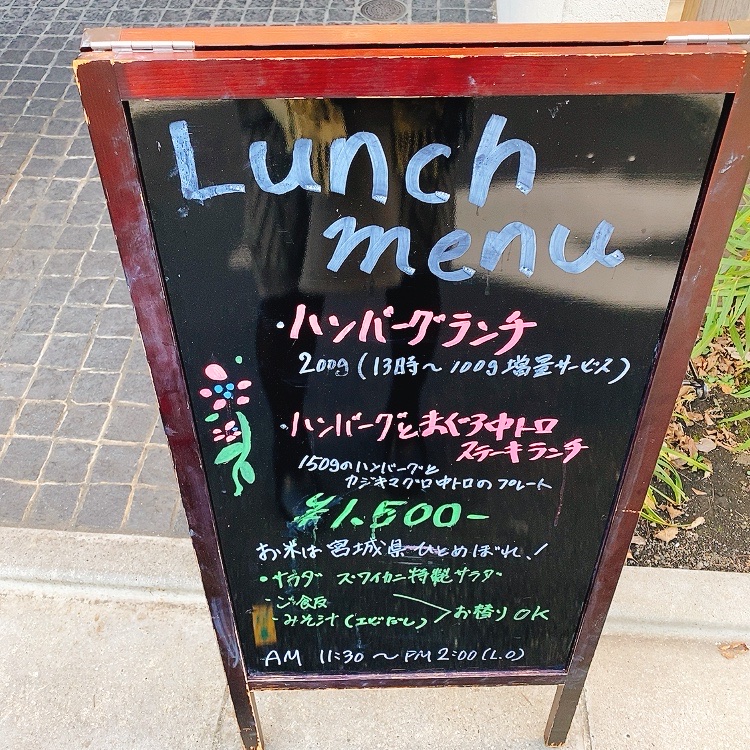 Lunch
menu
・ハンバーグランチ
200g（13時〜100g増量サービス）
・ハンバーグとまぐろ中トロ
ステーキランチ
150gのハンバーグと
カジキマグロ中トロのプレート
¥1,500-
お米は宮城県ひとめぼれ！
・サラダ ズワイカニ特製サラダ
・ご飯
・みそ汁（エビだし） お替りOK
AM 11:30 〜 PM 2:00 (L.O)